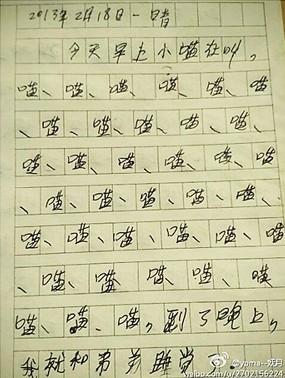 2013年2月18日 一 晴
今天早上小喵在叫,
喵、喵、喵、喵、喵、喵
、喵、喵、喵、喵、喵、
喵、喵、喵、喵、喵、喵
、喵、喵、喵、喵、喵、
喵、喵、喵、喵、喵、喵
、喵、喵、喵、喵、喵
喵、喵、喵,到了晚上,
我就和弟弟睡觉了.
@yoma--妖月
weibo.com/u/2702156224